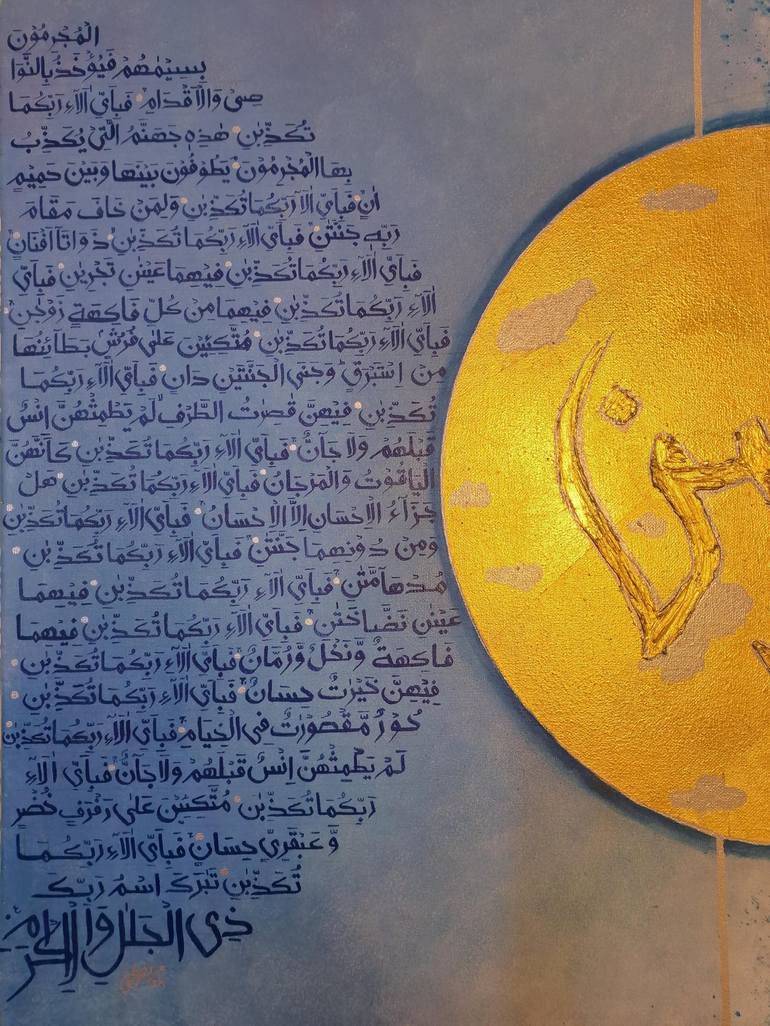 الْمُجْرِمُوْنَ
بِسِيْمٰىهُمْ فَيُؤْخَذُ بِالنَّوَا
صِىْ وَالْاَقْدَامِ فَبِاَىِّ اٰلَآءِ رَبِّكُمَا
تُكَذِّبٰنِ هٰذِهٖ جَهَنَّمُ الَّتِىْ يُكَذِّبُ
بِهَا الْمُجْرِمُوْنَ يَطُوْفُوْنَ بَيْنَهَا وَبَيْنَ حَمِيْمٍ
اٰنٍ فَبِاَىِّ اٰلَآءِ رَبِّكُمَا تُكَذِّبٰنِ وَلِمَنْ خَافَ مَقَامَ
رَبِّهٖ جَنَّتٰنِ فَبِاَىِّ اٰلَآءِ رَبِّكُمَا تُكَذِّبٰنِ ذَوَاتَآ اَفْنَانٍ
فَبِاَىِّ اٰلَآءِ رَبِّكُمَا تُكَذِّبٰنِ فِيْهِمَا عَيْنٰنِ تَجْرِيٰنِ فَبِاَىِّ
اٰلَآءِ رَبِّكُمَا تُكَذِّبٰنِ فِيْهِمَا مِنْ كُلِّ فَاكِهَةٍ زَوْجٰنِ
فَبِاَىِّ اٰلَآءِ رَبِّكُمَا تُكَذِّبٰنِ مُتَّكِئِيْنَ عَلٰى فُرُشٍ بَطَآئِنُهَا
مِنْ اِسْتَبْرَقٍ وَجَنَى الْجَنَّتَيْنِ دَانٍ فَبِاَىِّ اٰلَآءِ رَبِّكُمَا
تُكَذِّبٰنِ فِيْهِنَّ قٰصِرٰتُ الطَّرْفِ لَمْ يَطْمِثْهُنَّ اِنْسٌ
قَبْلَهُمْ وَلَا جَآنٌّ فَبِاَىِّ اٰلَآءِ رَبِّكُمَا تُكَذِّبٰنِ كَاَنَّهُنَّ
الْيَاقُوْتُ وَالْمَرْجَانُ فَبِاَىِّ اٰلَآءِ رَبِّكُمَا تُكَذِّبٰنِ هَلْ
جَزَآءُ الْاِحْسَانِ اِلَّا الْاِحْسَانُ فَبِاَىِّ اٰلَآءِ رَبِّكُمَا تُكَذِّبٰنِ
وَمِنْ دُوْنِهِمَا جَنَّتٰنِ فَبِاَىِّ اٰلَآءِ رَبِّكُمَا تُكَذِّبٰنِ
مُدْهَآمَّتٰنِ فَبِاَىِّ اٰلَآءِ رَبِّكُمَا تُكَذِّبٰنِ فِيْهِمَا
عَيْنٰنِ نَضَّاخَتٰنِ فَبِاَىِّ اٰلَآءِ رَبِّكُمَا تُكَذِّبٰنِ فِيْهِمَا
فَاكِهَةٌ وَّنَخْلٌ وَّرُمَّانٌ فَبِاَىِّ اٰلَآءِ رَبِّكُمَا تُكَذِّبٰنِ
فِيْهِنَّ خَيْرٰتٌ حِسَانٌ فَبِاَىِّ اٰلَآءِ رَبِّكُمَا تُكَذِّبٰنِ
حُوْرٌ مَّقْصُوْرٰتٌ فِى الْخِيَامِ فَبِاَىِّ اٰلَآءِ رَبِّكُمَا تُكَذِّبٰنِ
لَمْ يَطْمِثْهُنَّ اِنْسٌ قَبْلَهُمْ وَلَا جَآنٌّ فَبِاَىِّ اٰلَآءِ
رَبِّكُمَا تُكَذِّبٰنِ مُتَّكِئِيْنَ عَلٰى رَفْرَفٍ خُضْرٍ
وَّعَبْقَرِىٍّ حِسَانٍ فَبِاَىِّ اٰلَآءِ رَبِّكُمَا
تُكَذِّبٰنِ تَبٰرَكَ اسْمُ رَبِّكَ
ذِى الْجَلٰلِ وَالْاِكْرَامِ